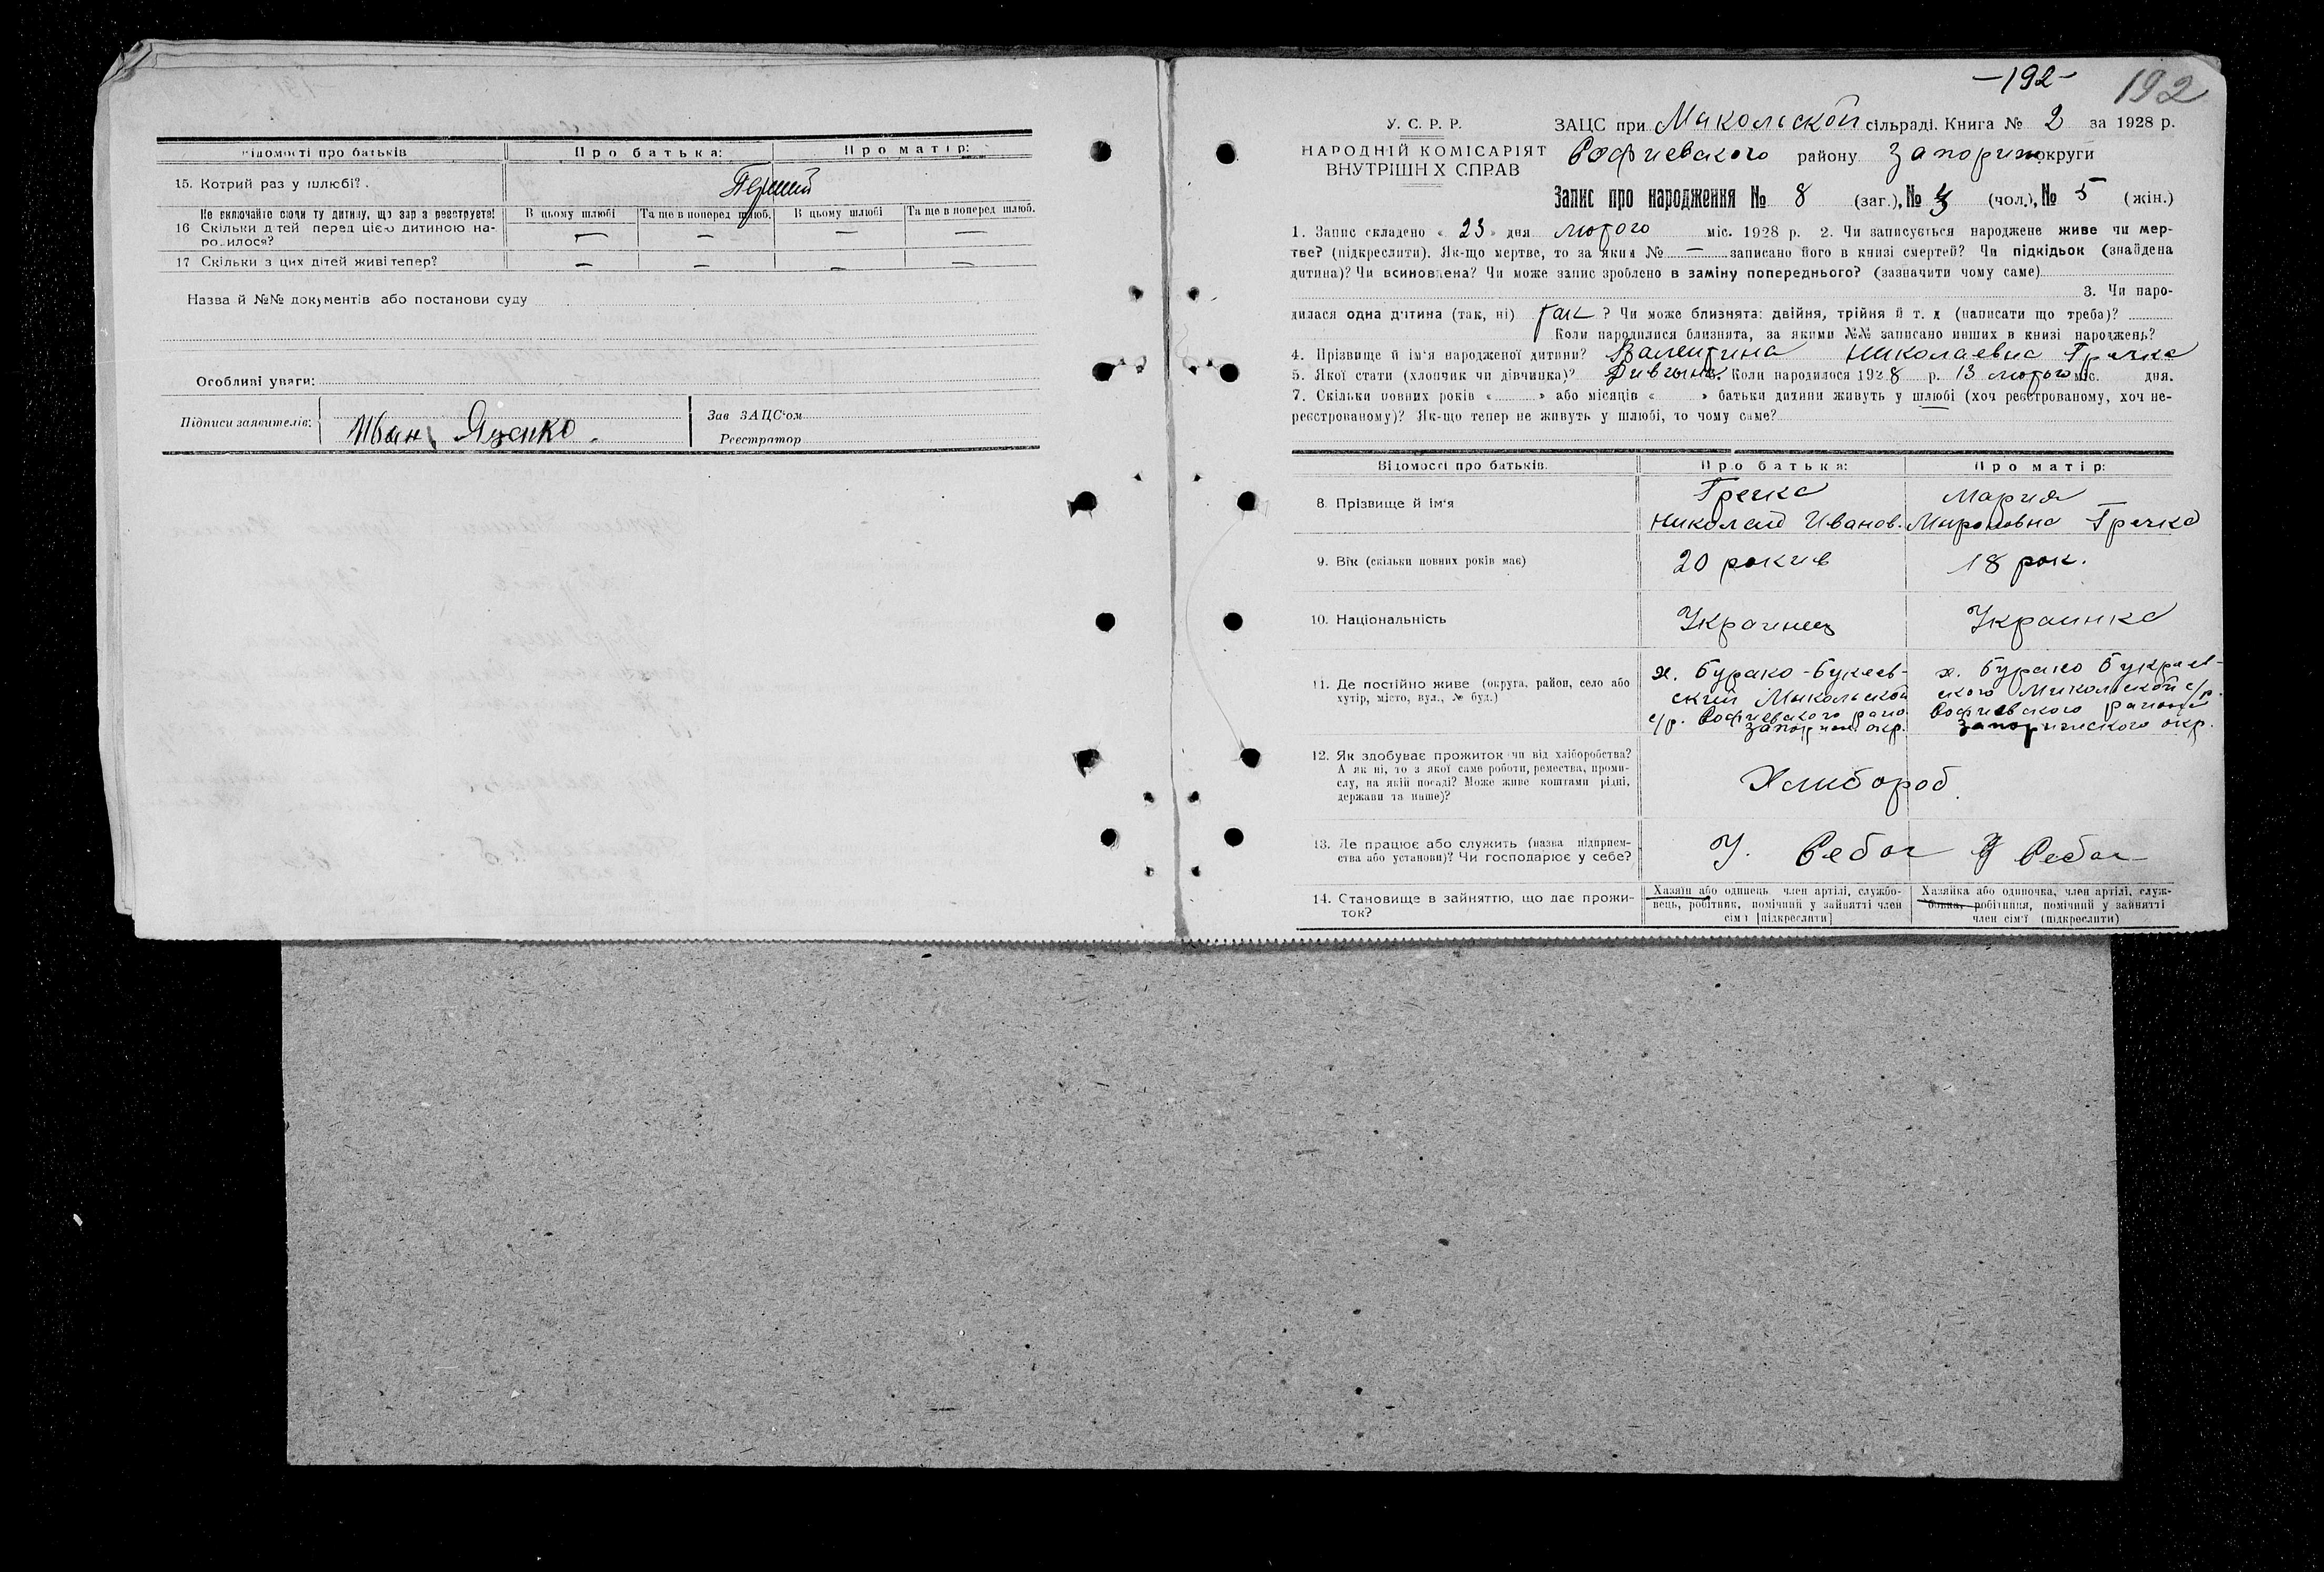 Відомості про батьків
Про батька:
Про матір:
15. Котрий раз у шлюбі?.
Перший
Не включайте сюди ту дитину, що зараз реєструєте!
16 Скільки дітей перед цією дитиною на-
родилося?
В цьому шлюбі
Та ще в поперед шлюб.
В цьому шлюбі
Та ще в поперед шлюб.
— — — —
17 Скільки з цих дітей живі тепер?
— — — —
Назва й №№ документів або постанови суду
Особливі уваги:
Підписи заявителів:
Иван Яценко.
Зав ЗАЦС'ом
Реєстратор
-192-
192
У. С. Р. Р.
НАРОДНІЙ КОМІСАРІЯТ
ВНУТРІШНІХ СПРАВ
ЗАЦС при Микольской сільраді. Книга № 2 за 1928 р.
Софиевского району Запориж округи
Запис про народження № 8 (заг.), № 3 (чол.), № 5 (жін.)
1. Запис складено « 23 » дня лютого міс. 1928 р. 2. Чи записується народжене живе чи мер-
тве? (підкреслити). Як-що мертве, то за яким № — записано його в книзі смертей? Чи підкідьок (знайдена
дитина)? Чи всиновлена? Чи може запис зроблено в заміну попереднього? (зазначити чому саме)
3. Чи наро-
дилася одна дитина (так, ні) так ? Чи може близнята: двійня, трійня й т. д (написати що треба)?
Коли народилися близнята, за якими №№ записано инших в книзі народжень?
4. Прізвище й ім'я народженої дитини? Валентина Николаевна Гречка
5. Якої стати (хлопчик чи дівчинка)? Дивчына. Коли народилося 1928 р. 13 лютого міс. дня.
7. Скільки повних років « » або місяців « » батьки дитини живуть у шлюбі (хоч реєстрованому, хоч не-
реєстрованому)? Як-що тепер не живуть у шлюбі, то чому саме?
Відомості про батьків.
Про батька:
Про матір:
8. Прізвище й ім'я
Гречка
Николай Иванов.
Мария
Мироновна Гречка
9. Вік (скільки повних років має)
20 рокив
18 рок.
10. Національність
Украинец
Украинка
11. Де постійно живе (округа, район, село або
хутір, місто, вул., № буд.)
х. Бурако-
ский Микольской
с/р. Софиевского райо
Запориж. окр.
х. Бурако
ского Микольской с/р.
Софиевского района
Запорижского окр.
12. Як здобуває прожиток чи від хліборобства?
А як ні, то з якої саме роботи, ремества, проми-
слу, на якій посаді? Може живе коштами рідні,
держави та инше)?
Хлибороб
13. Де працює або служить (назва підприєм-
ства або установи)? Чи господарює у себе?
У. Себя
У Себя
14. Становище в зайняттю, що дає прожи-
ток?
Хазяїн або одинець, член артілі, службо-
вець, робітник, помічний у зайнятті член
сім'ї [підкреслити]
Хазяйка або одиночка, член артілі, служ-
бовка, робітниця, помічний у зайнятті
член сім'ї (підкреслити)